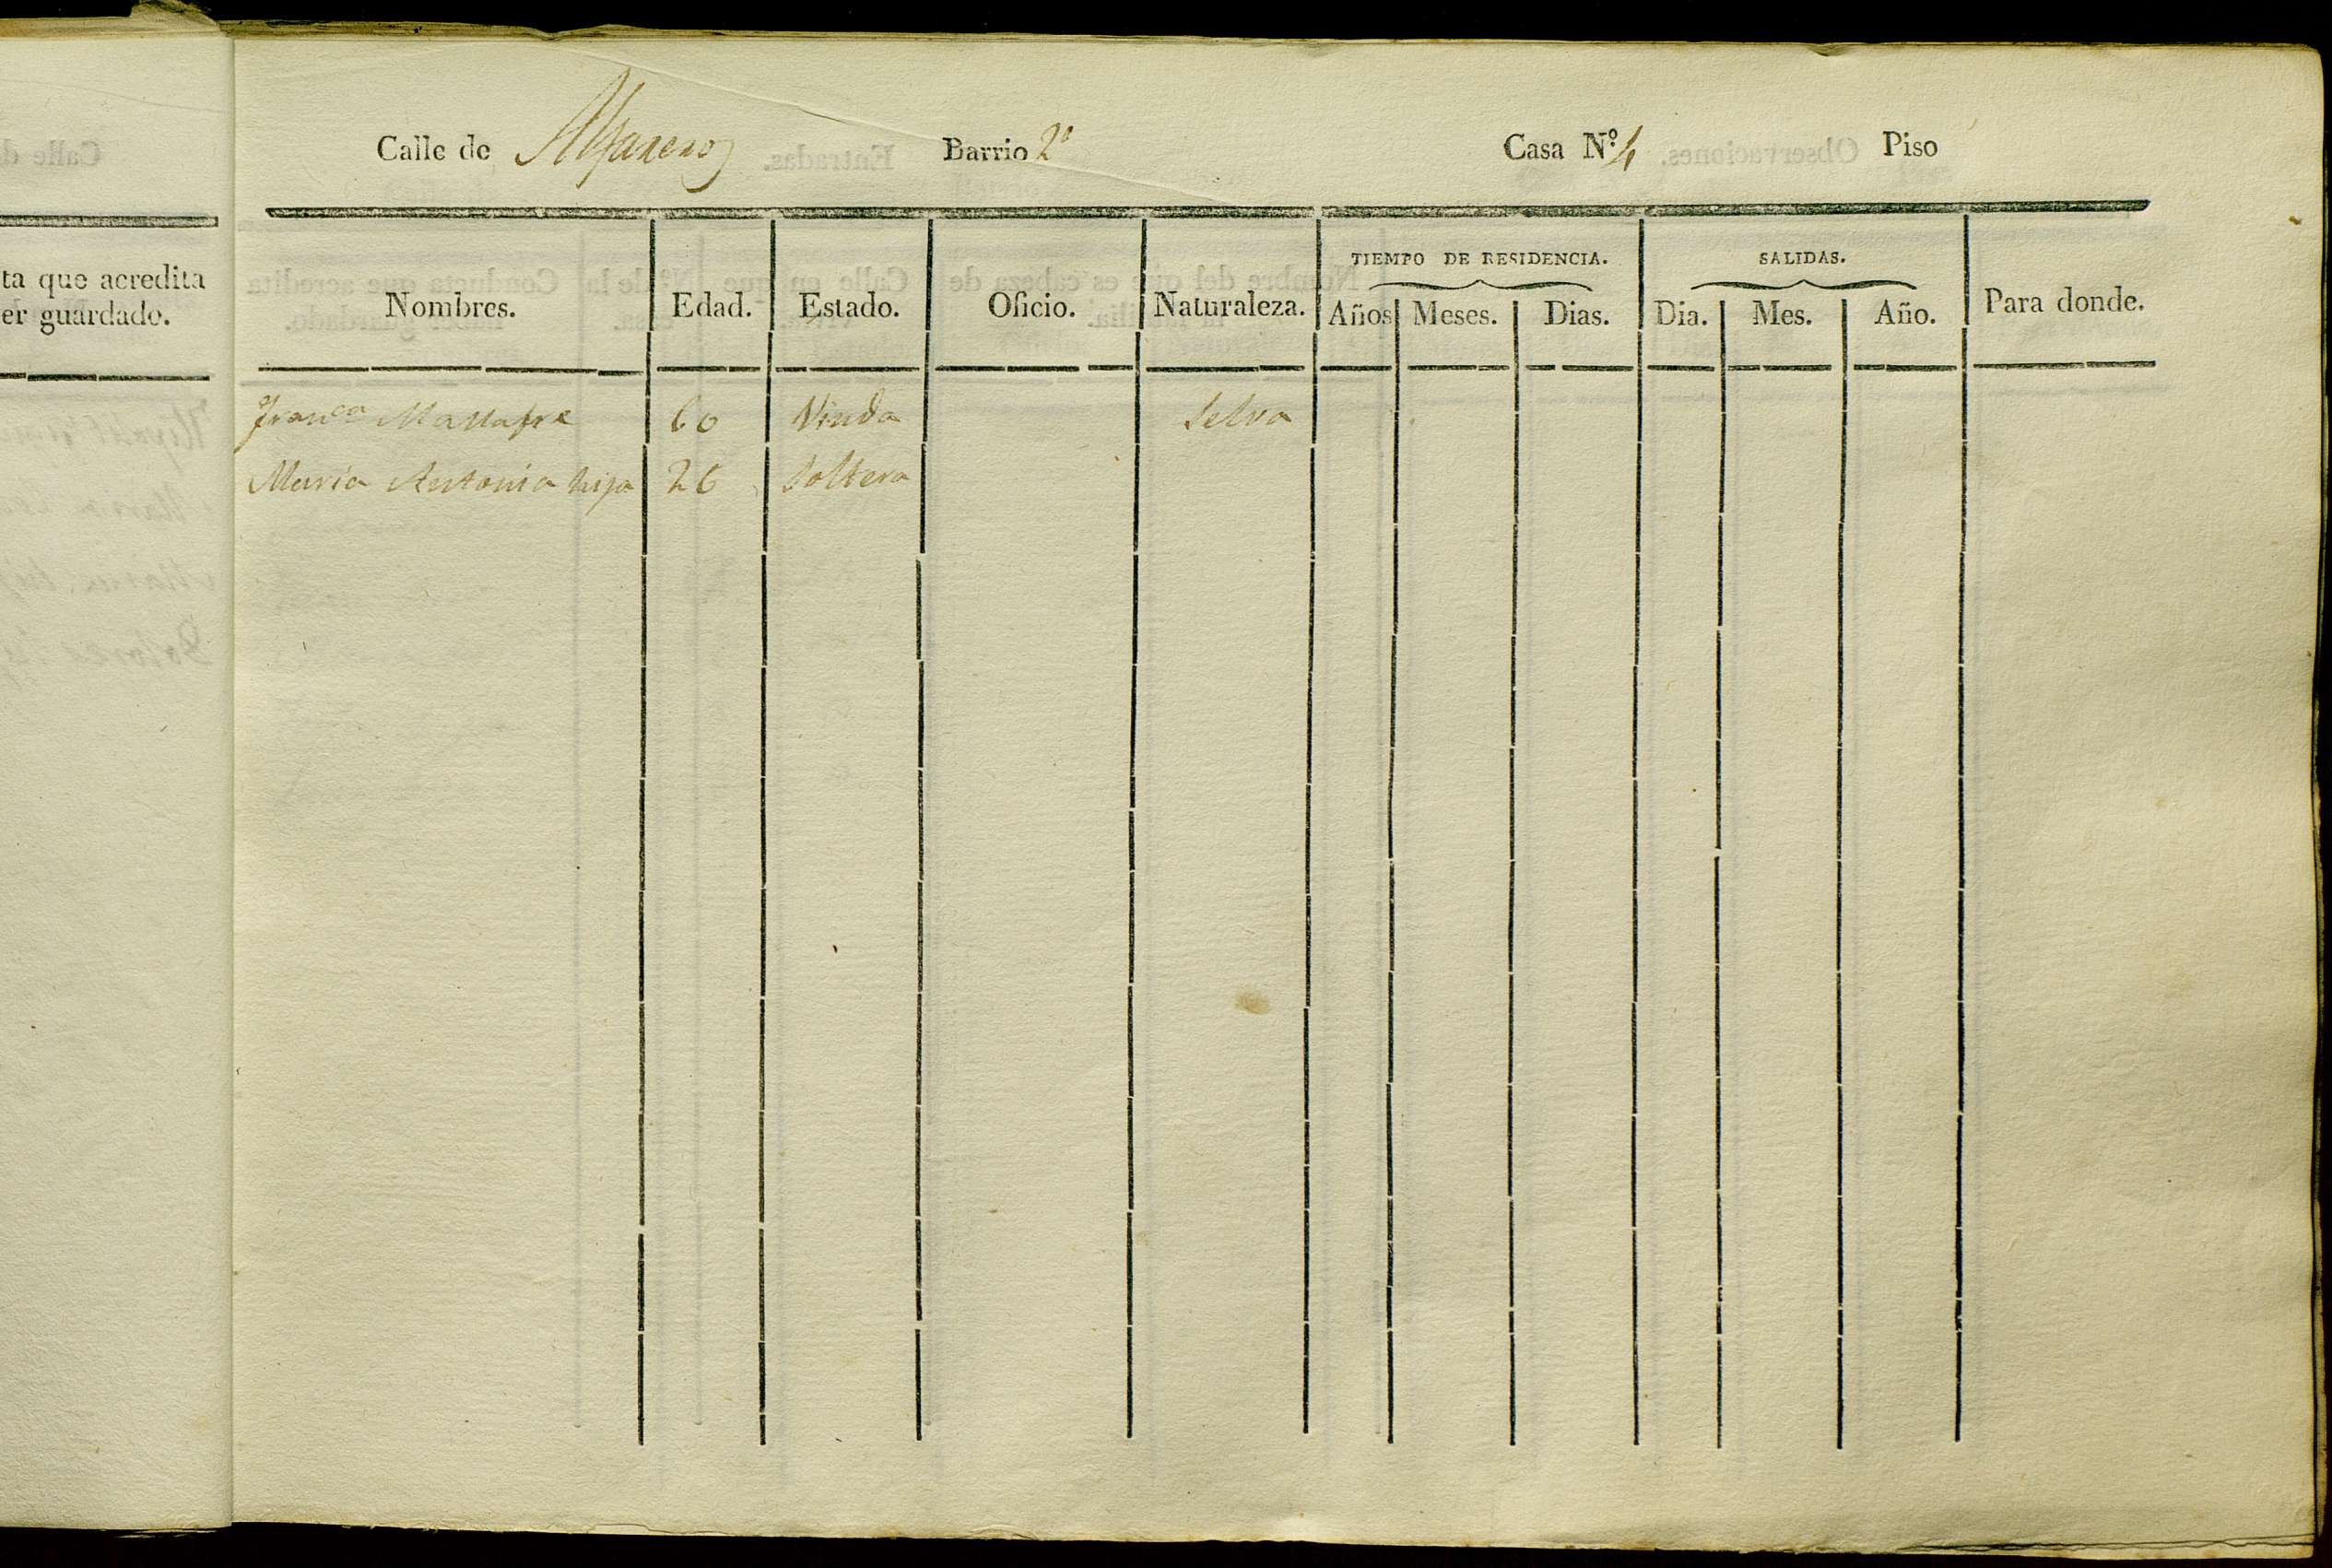 Calle de Alfareros Barrio 2º Casa Nº 4 Piso
ta que acredita
er guardado.
TIEMPO DE RESIDENCIA. SALIDAS.
Nombres. Edad. Estado. Oficio. Naturaleza. Años Meses. Dias. Dia. Mes. Año. Para donde.
Franca Mallafre 60 Viuda Selva
Maria Antonia hija 26 Soltera